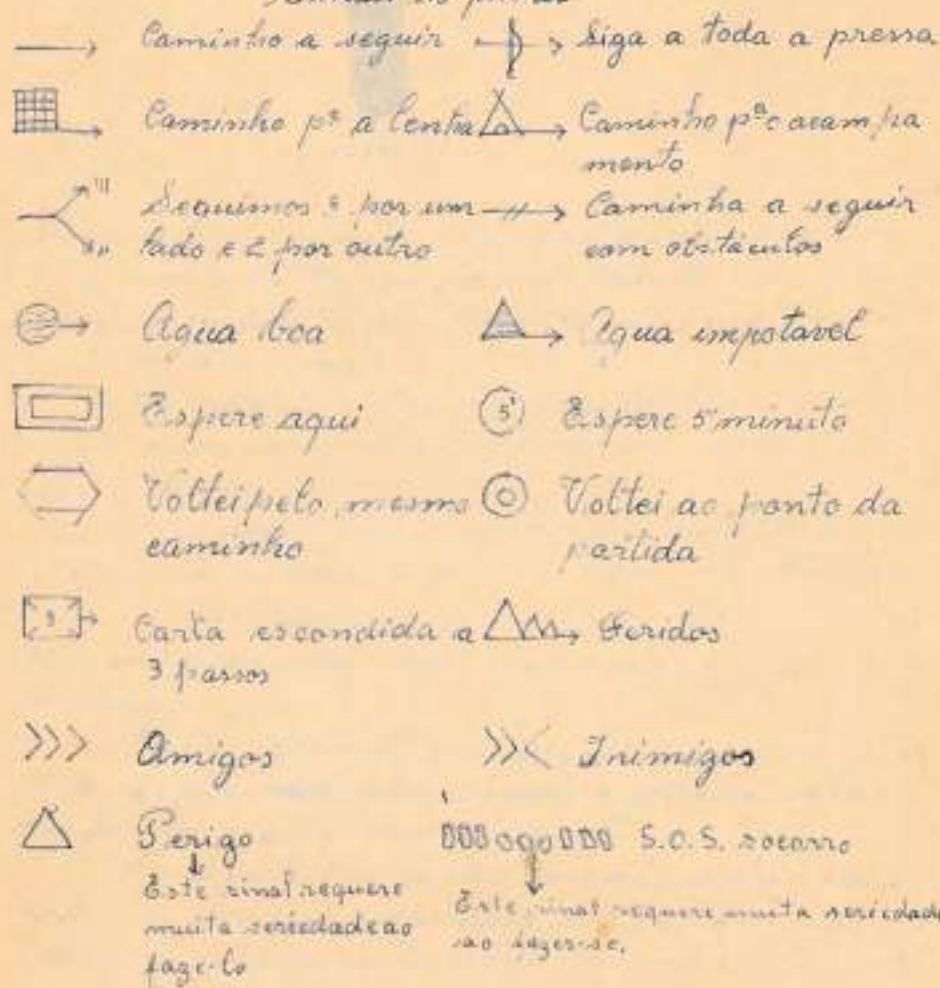 Caminho a seguir
Siga a toda a pressa
Caminho pª a
Caminho pª o acampa
mento
Seguimos 3 por um
lado e 2 por outro
Caminha a seguir
com obstáculos
Agua boa
Agua impotavel
Espere aqui
5'
Espere 5 minuto
Voltei pelo mesmo
caminho
Voltei ao ponto da
partida
3
Carta escondida a
3 passos
Feridos
Amigos
Inimigos
Perigo
Este sinal requere
muita seriedade ao
faze-lo
S.O.S. socorro
Este sinal requere muita seriedade
ao fazer-se.